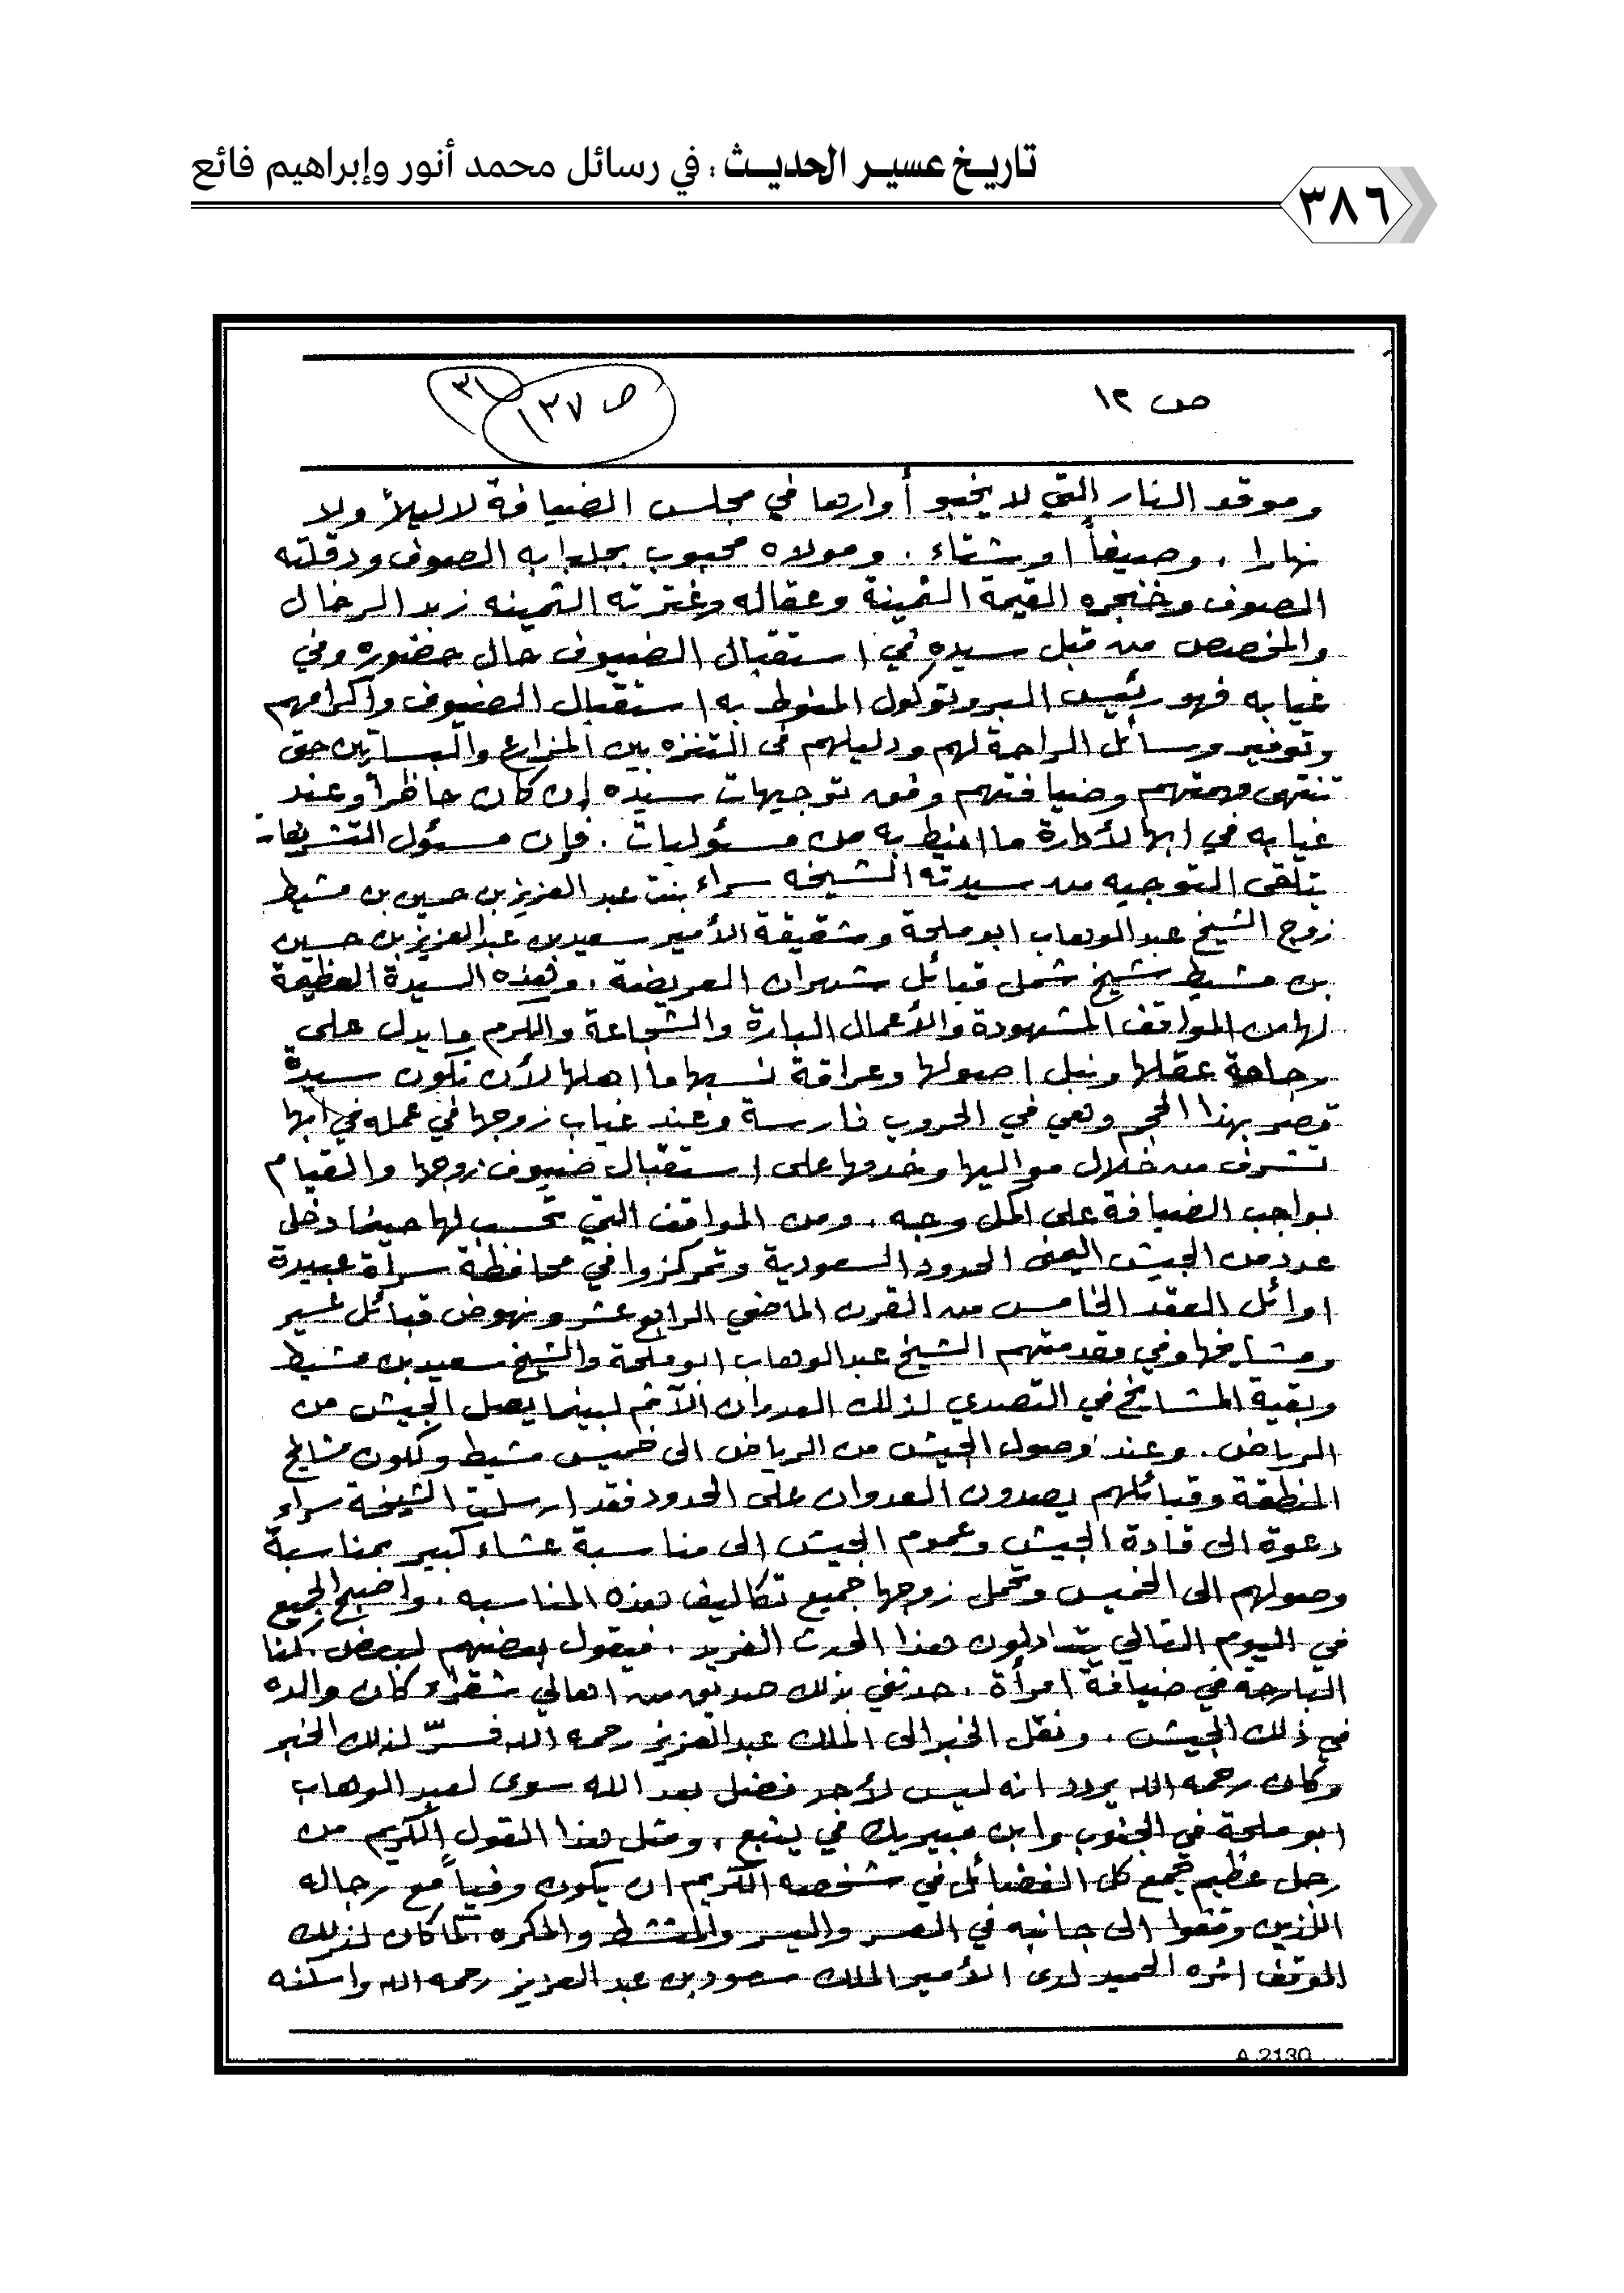 تاريخ عسير الحديث : في رسائل محمد أنور وإبراهيم فائع
٣٨٦
ص ١٢
ص ١٣٧
٣١
وموقد النار التي لا يخبو أوارها في مجلس الضيافة لا ليلاً ولا
نهارا ، وصيفاً او شتاء . ومولاه محبوب بجلبابه الصوف ودقلته
الصوف وخنجره القيمة الثمينة وعقاله وغترته الثمينه زبد الرخال
والمخصص من قبل سيده في استقبال الضيوف حال حضوره وفي
غيابه فهو رئيس البروتوكول المنوط به استقبال الضيوف وأكرامهم
وتوفير وسائل الراحة لهم ودليلهم في التنزه بين المزارع والبساتين حتى
تنتهي مهمتهم وضيافتهم وفق توجيهات سيده إن كان حاظراً وعند
غيابه في ابها لأدارة ما انيط به من مسئوليات . فإن مسئول التشريفات
يتلقى التوجيه من سيدته الشيخه سراء بنت عبد العزيز بن حسين بن مشيط
زوج الشيخ عبدالوهاب ابو ملحة وشقيقة الأمير سعيد بن عبدالعزيز بن حسين
بن مشيط شيخ شمل قبائل شهران العريضة . وهذه السيدة العظيمة
لها من المواقف المشهودة والأعمال البارة والشجاعة والكرم ما يدل على
رجاحة عقلها ونبل اصولها وعراقة نسبها ما اهلها لأن تكون سيدة
قصر بهذا الحجم وهي في الحروب فارسة وعند غياب زوجها في عمله في ابها
تشرف من خلال مواليها وخدمها على استقبال ضيوف زوجها والقيام
بواجب الضيافة على اكمل وجه . ومن المواقف التي تحسب لها حينما دخل
عدد من الجيش اليمني الحدود السعودية وتمركزوا في محافظة سراة عبيدة
اوائل العقد الخامس من القرن الماضي الرابع عشر ونهوض قبائل عسير
ومشايخها وفي مقدمتهم الشيخ عبدالوهاب ابو ملحة والشيخ سعيد بن مشيط
وبقية المشايخ في التصدي لذلك العدوان الآثم لبينما يصل الجيش من
الرياض . وعند وصول الجيش من الرياض الى خميس مشيط وكون مشايخ
المنطقة وقبائلهم يصدون العدوان على الحدود فقد ارسلت الشيخة سراء
دعوة الى قادة الجيش وعموم الجيش الى مناسبة عشاء كبير بمناسبة
وصولهم الى الخميس وتحمل زوجها جميع تكاليف هذه المناسبه . واضبح الجميع
في اليوم التالي يتدادلون هذا الحدث الفريد . فيقول بعضهم لبعض . كنا
البارحة في ضيافة امرأة . حدثني بذلك صديق من اهالي شقراء كان والده
في ذلك الجيش . ونقل الخبر الى الملك عبدالعزيز رحمه الله فسرّ لذلك الخبر
وكان رحمه الله يردد انه ليس لأحد فضل بعد الله سوى لعبدالوهاب
ابو ملحة في الجنوب وابن مبيريك في ينبع . ومثل هذا القول الكريم من
رجل عظيم تجمع كل الفضائل في شخصه الكريم ان يكون وفياً مع رجاله
اللذين وقفوا الى جانبه في العسر واليسر والمنشط والمكره . كما كان لذلك
الموقف اثره الحميد لدى الأمير الملك سعود بن عبدالعزيز رحمه الله واسكنه
A 2130